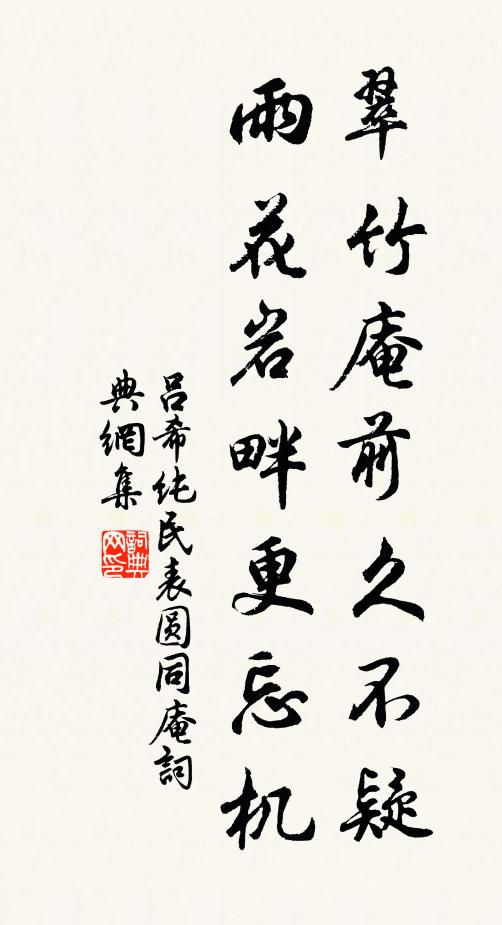 翠竹庵前久不疑
雨花岩畔更忘机
吕希纯民表圆同庵詞
典網集
詞典网印